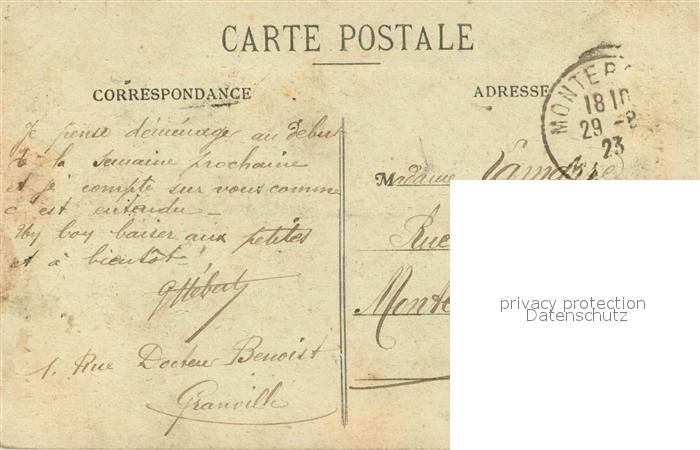 CARTE POSTALE
CORRESPONDANCE
ADRESSE
MONTER
18 10
29 - 8
23
Je pense déménager au début
de la semaine prochaine
et je compte sur vous comme
c est entendu _
boy baiser aux petites
et à bientôt !
GHébert
1. Rue Docteur Benoist
Granville
Madame
Rue
Monte
privacy protection
Datenschutz